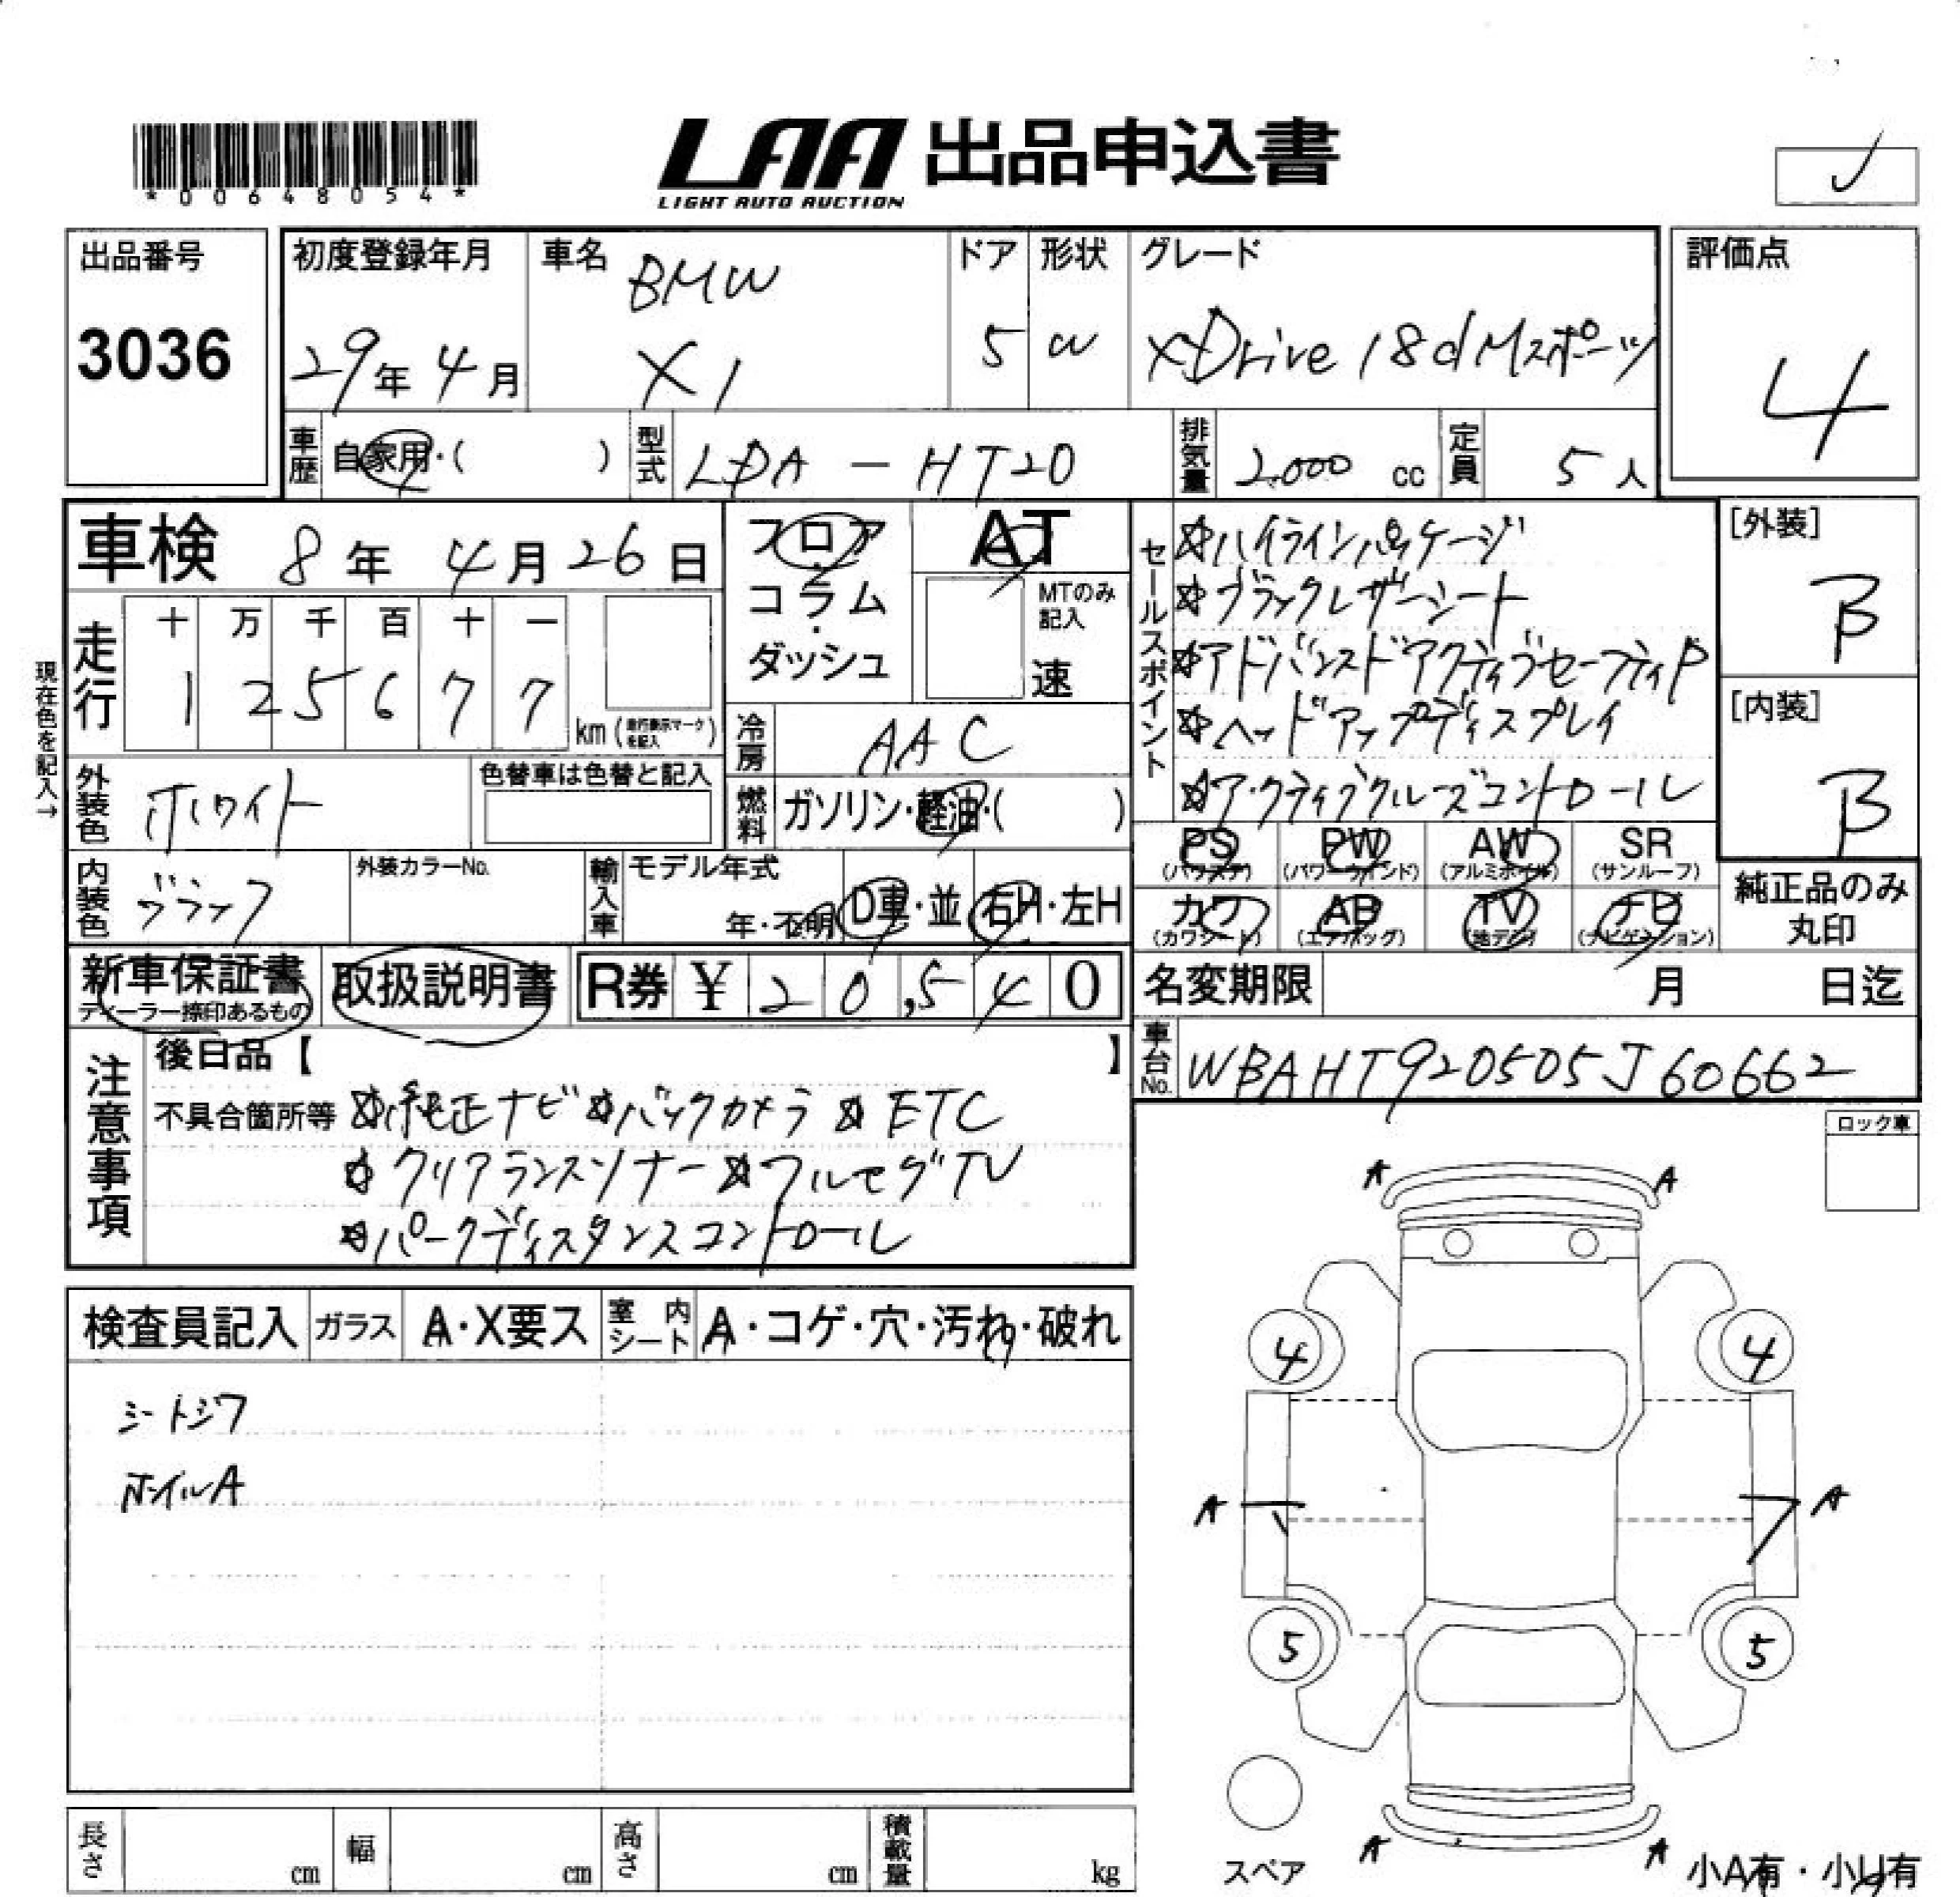 *00648054*
LAA 出品申込書
LIGHT AUTO AUCTION
レ
出品番号
3036
初度登録年月
29年4月
車名
BMW
X1
ドア
5
形状
W
グレード
xDrive 18d Mスポーツ
評価点
4
車歴 自家用・( )
型式 LDA-HT20
排気量 2,000 cc
定員 5人
車検 8年4月26日
フロア・コラム・ダッシュ
AT
MTのみ記入
速
現在色を記入→
走行
十 万 千 百 十 一
1 2 5 6 7 7
km(走行表示マークを記入)
冷房 AAC
外装色 ホワイト
色替車は色替と記入
燃料 ガソリン・軽油・( )
内装色 ブラック
外装カラーNo.
輸入車
モデル年式
年・不明
D車・並
右H・左H
セールスポイント
☆ハイラインパッケージ
☆ブラックレザーシート
☆アドバンスドアクティブセーフティP
☆ヘッドアップディスプレイ
☆アクティブクルーズコントロール
[外装]
B
[内装]
B
PS PW AW SR
(パワステ) (パワーウインド) (アルミホイル) (サンルーフ)
カワ AB TV ナビ
(カワシート) (エアバッグ) (地デジ) (ナビゲーション)
純正品のみ
丸印
新車保証書
ディーラー捺印あるもの
取扱説明書
R券 ¥ 20,540
名変期限 月 日迄
車台No. WBAHT920505J60662
注意事項
後日品【 】
不具合箇所等 ☆純正ナビ☆バックカメラ☆ETC
☆クリアランスソナー☆フルセグTV
☆パークディスタンスコントロール
ロック車
検査員記入
ガラス A・X要ス
室内シート A・コゲ・穴・汚れ・破れ
シートシワ
ホイルA
A A
4 4
A A
5 5
A A
スペア
小A有・小U有
長さ cm
幅 cm
高さ cm
積載量 kg